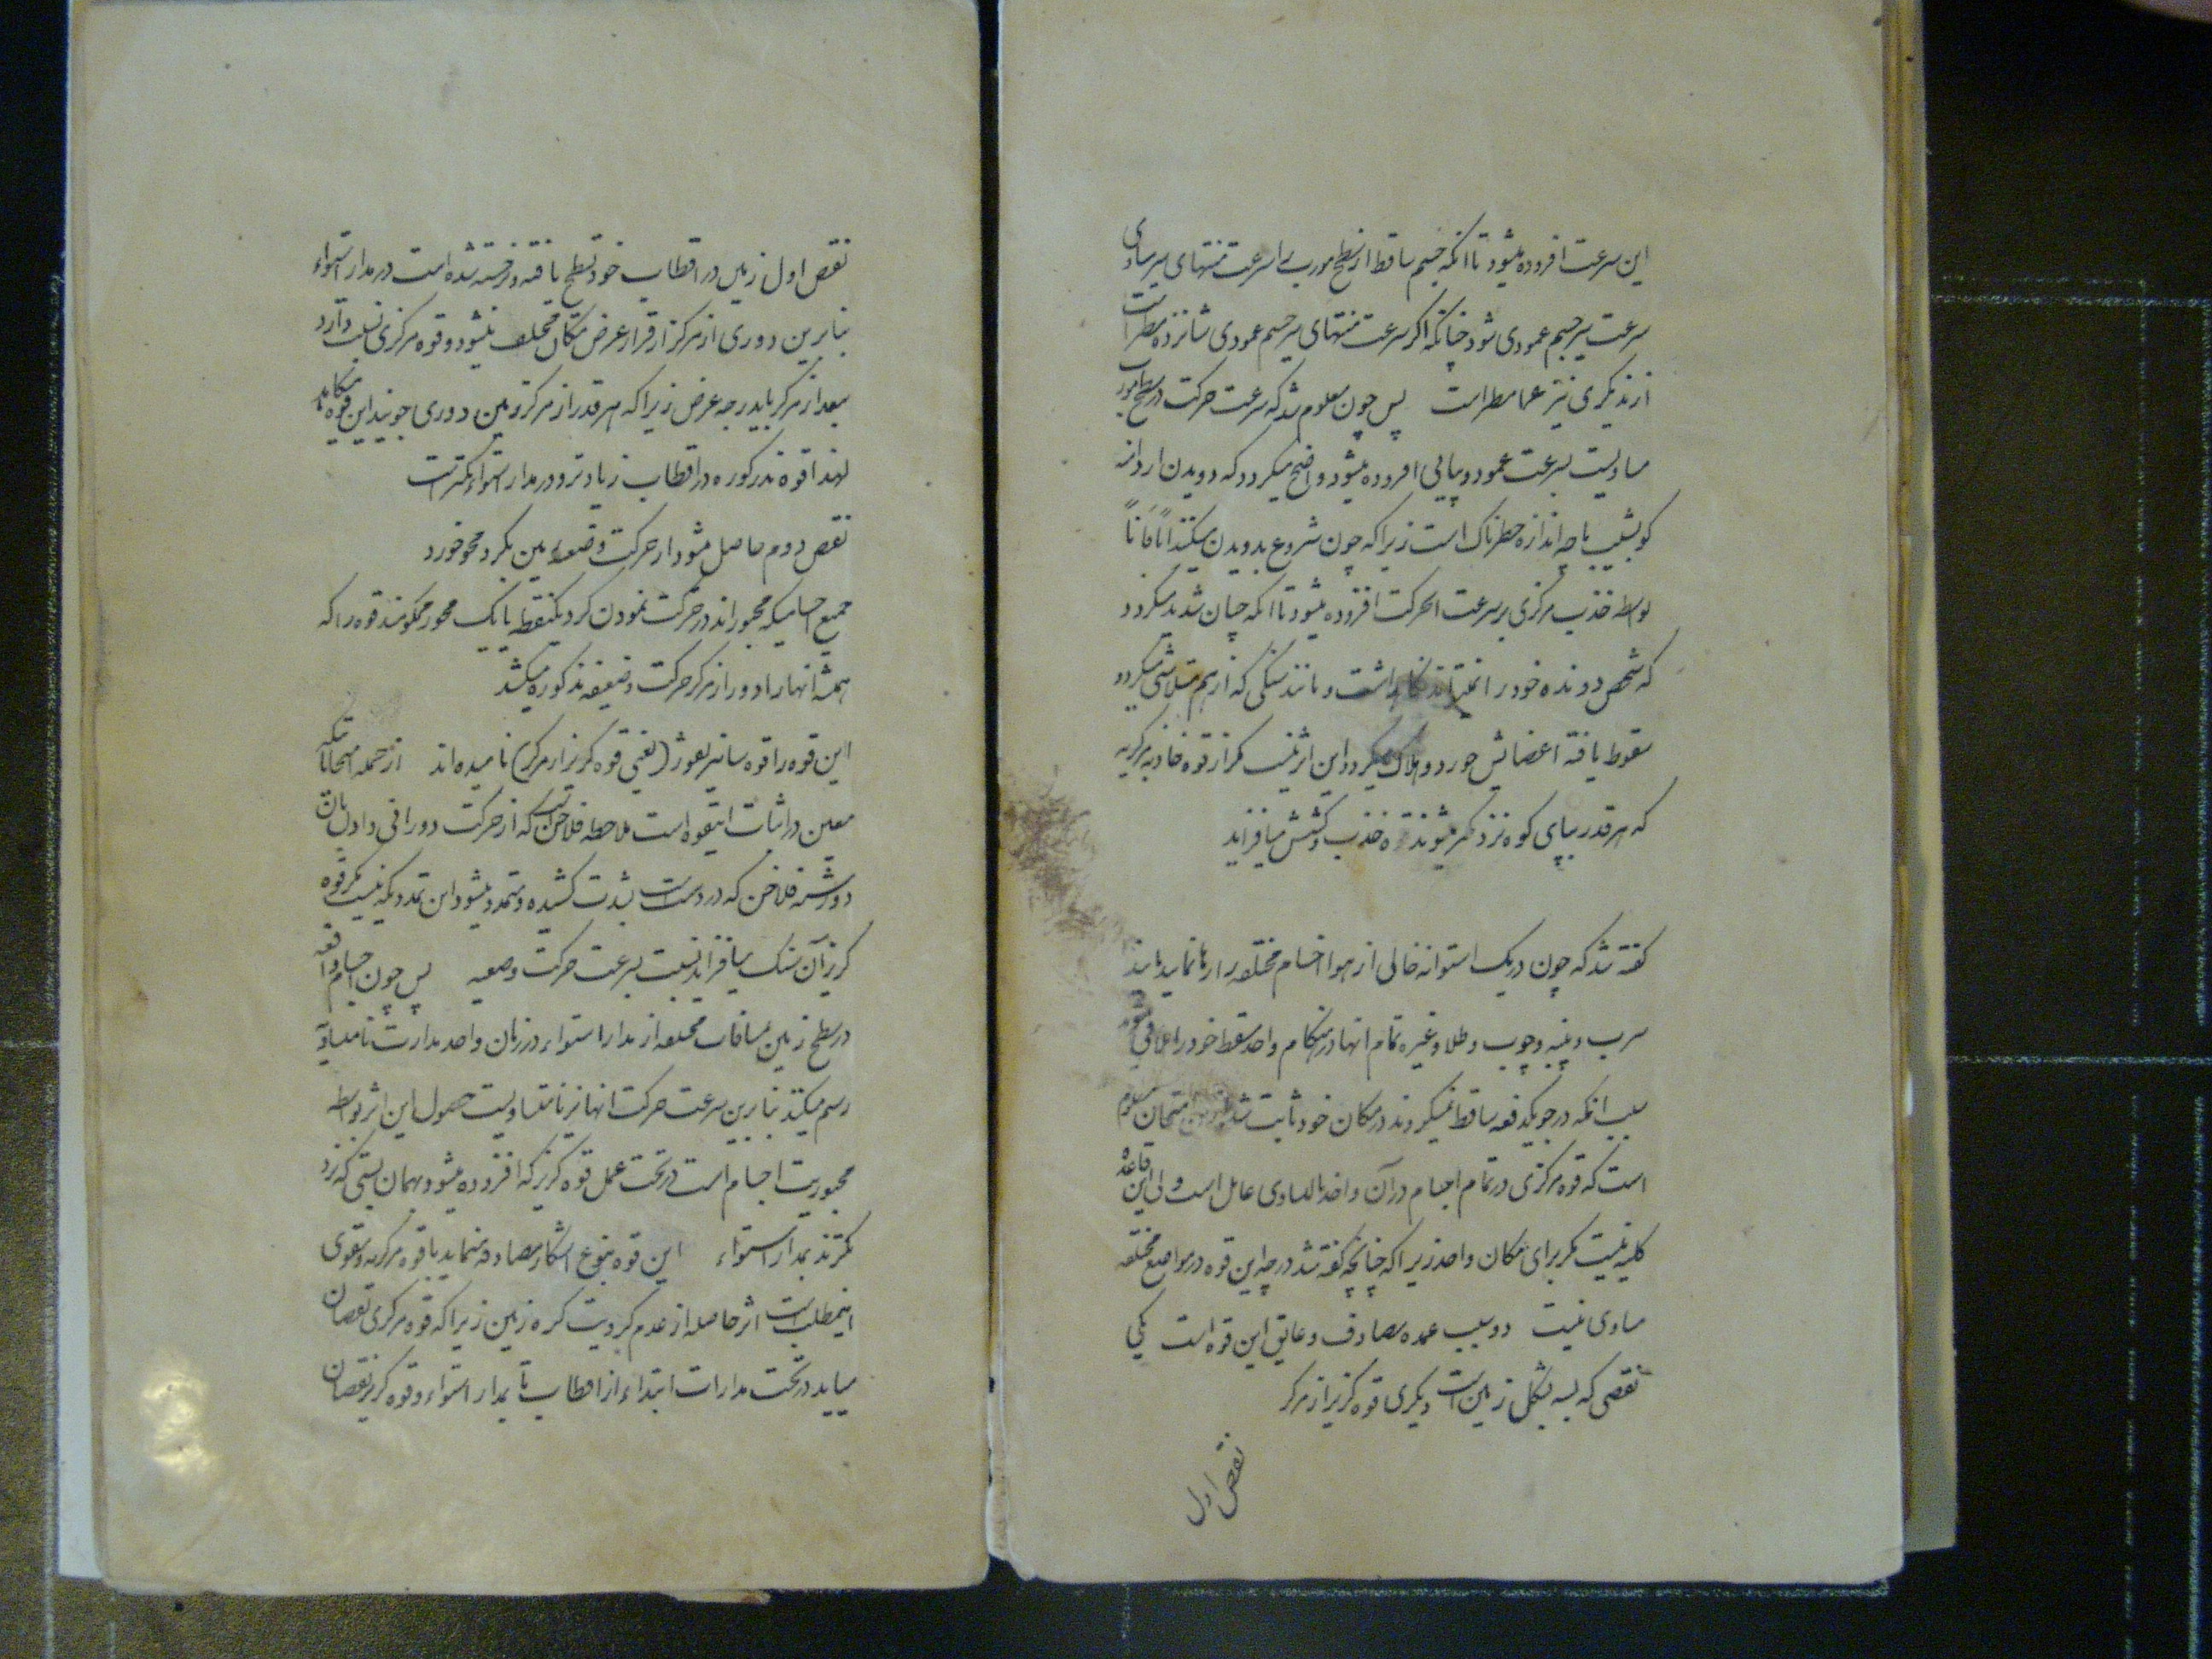 این سرعت افزوده میشود تا انکه جسم ساقط از سطح مورب سرعت منتهای سیر مساوی
سرعت سیر جسم عمودی شود چنانکه اگر سرعت منتهای سیر جسم عمودی شانزده مطر است
از دیگری نیز مطر است پس چون معلوم شد که سرعت حرکت در سطح مورب
مساویست بسرعت عمود و بیابی افزوده میشود واضح میگردد که دویدن از دامنه
کو بشیب با چه اندازه خطرناک است زیرا که چون شروع بدویدن میکند آناً فاناً
بواسطه جذب مرکزی بر سرعت الحرکت افزوده میشود تا انکه چنان شدید میگردد
که شخص دونده خود را نمیتواند نگاهداشت و مانند سنگی که از هم متلاشی میگردد
سقوط یافته اعضایش خورد و هلاک میگردد این اثر نیست مگر از قوه جاذبه مرکزیه
که هر قدر بپای کوه نزدیکتر میشوند قوه جذب و کشش میافزاید
گفته شد که چون در یک استوانه خالی از هوا اجسام مختلفه را رها نمایند مانند
سرب و پنبه و چوب و طلا و غیره تمام انها در هنگام واحد سقط خود را
سبب انکه در جو یکدفعه ساقط نمیگردند در مکان خود ثابت شد امتحان معلوم
است که قوه مرکزی در تمام اجسام در آن واحد بالتساوی عامل است ولی این قاعده
کلیه نیست مگر برای مکان واحد زیرا که چنانچه گفته شد درجه این قوه در مواضع مختلفه
مساوی نیست دو سبب عمده مصادف و عایق این قوه است یکی
نقصی که بسته بشکل زمین است دیگری قوه گریز از مرکز
نقص اول
نقص اول زمین در اقطاب خود تسطح یافته و برجسته شده است در مدار استواء
بنابرین دوری از مرکز از قرار عرض مکان مختلف میشود و قوه مرکزی نسبت دارد
ببعد از مرکز یا بدرجه عرض زیرا که هر قدر از مرکز زمین دوری جویند این قوه میکاهد
لهذا قوه مذکوره در اقطاب زیادتر و در مدار استواء کمتر است
نقص دوم حاصل میشود از حرکت وضعیه زمین بگرد محور خود
جمیع اجسامیکه مجبورند در حرکت نمودن گرد یکنقطه یا یک محور محکومند قوه را که
همیشه انها را دور از مرکز حرکت وضعیه مذکوره میکشد
این قوه را قوه سانتریفوژ (یعنی قوه گریز از مرکز) نامیده اند از جمله امتحانات
معین در اثبات اینقوه است ملاحظه فلاخن سنگی که از حرکت دورانی دادن بان
دو رشته فلاخن که در دست است بشدت کشیده و متمدد میشود این تمدد یکه نیست مگر قوه
گریز آن سنگ میافزاید نسبت بسرعت حرکت وضعیه پس چون اجسام واقعه
در سطح زمین بمسافات مختلفه از مدار استواء در زمان واحد مدارات نامساویه
رسم میکنند بنابرین سرعت حرکت انها نیز نامساویست حصول این اثر بواسطه
مجبوریت اجسام است در تحت عمل قوه گریز که افزوده میشود بهمان نسبتی که نزد
یکترند بمدار استواء این قوه بنوع اشکار مصادفه مینماید با قوه مرکزیه و مقوی
اینمطلب است اثر حاصله از عدم کرویت کره زمین زیرا که قوه مرکزی نقصان
مییابد در تحت مدارات ابتداء از اقطاب تا بمدار استواء و قوه گریز نقصان